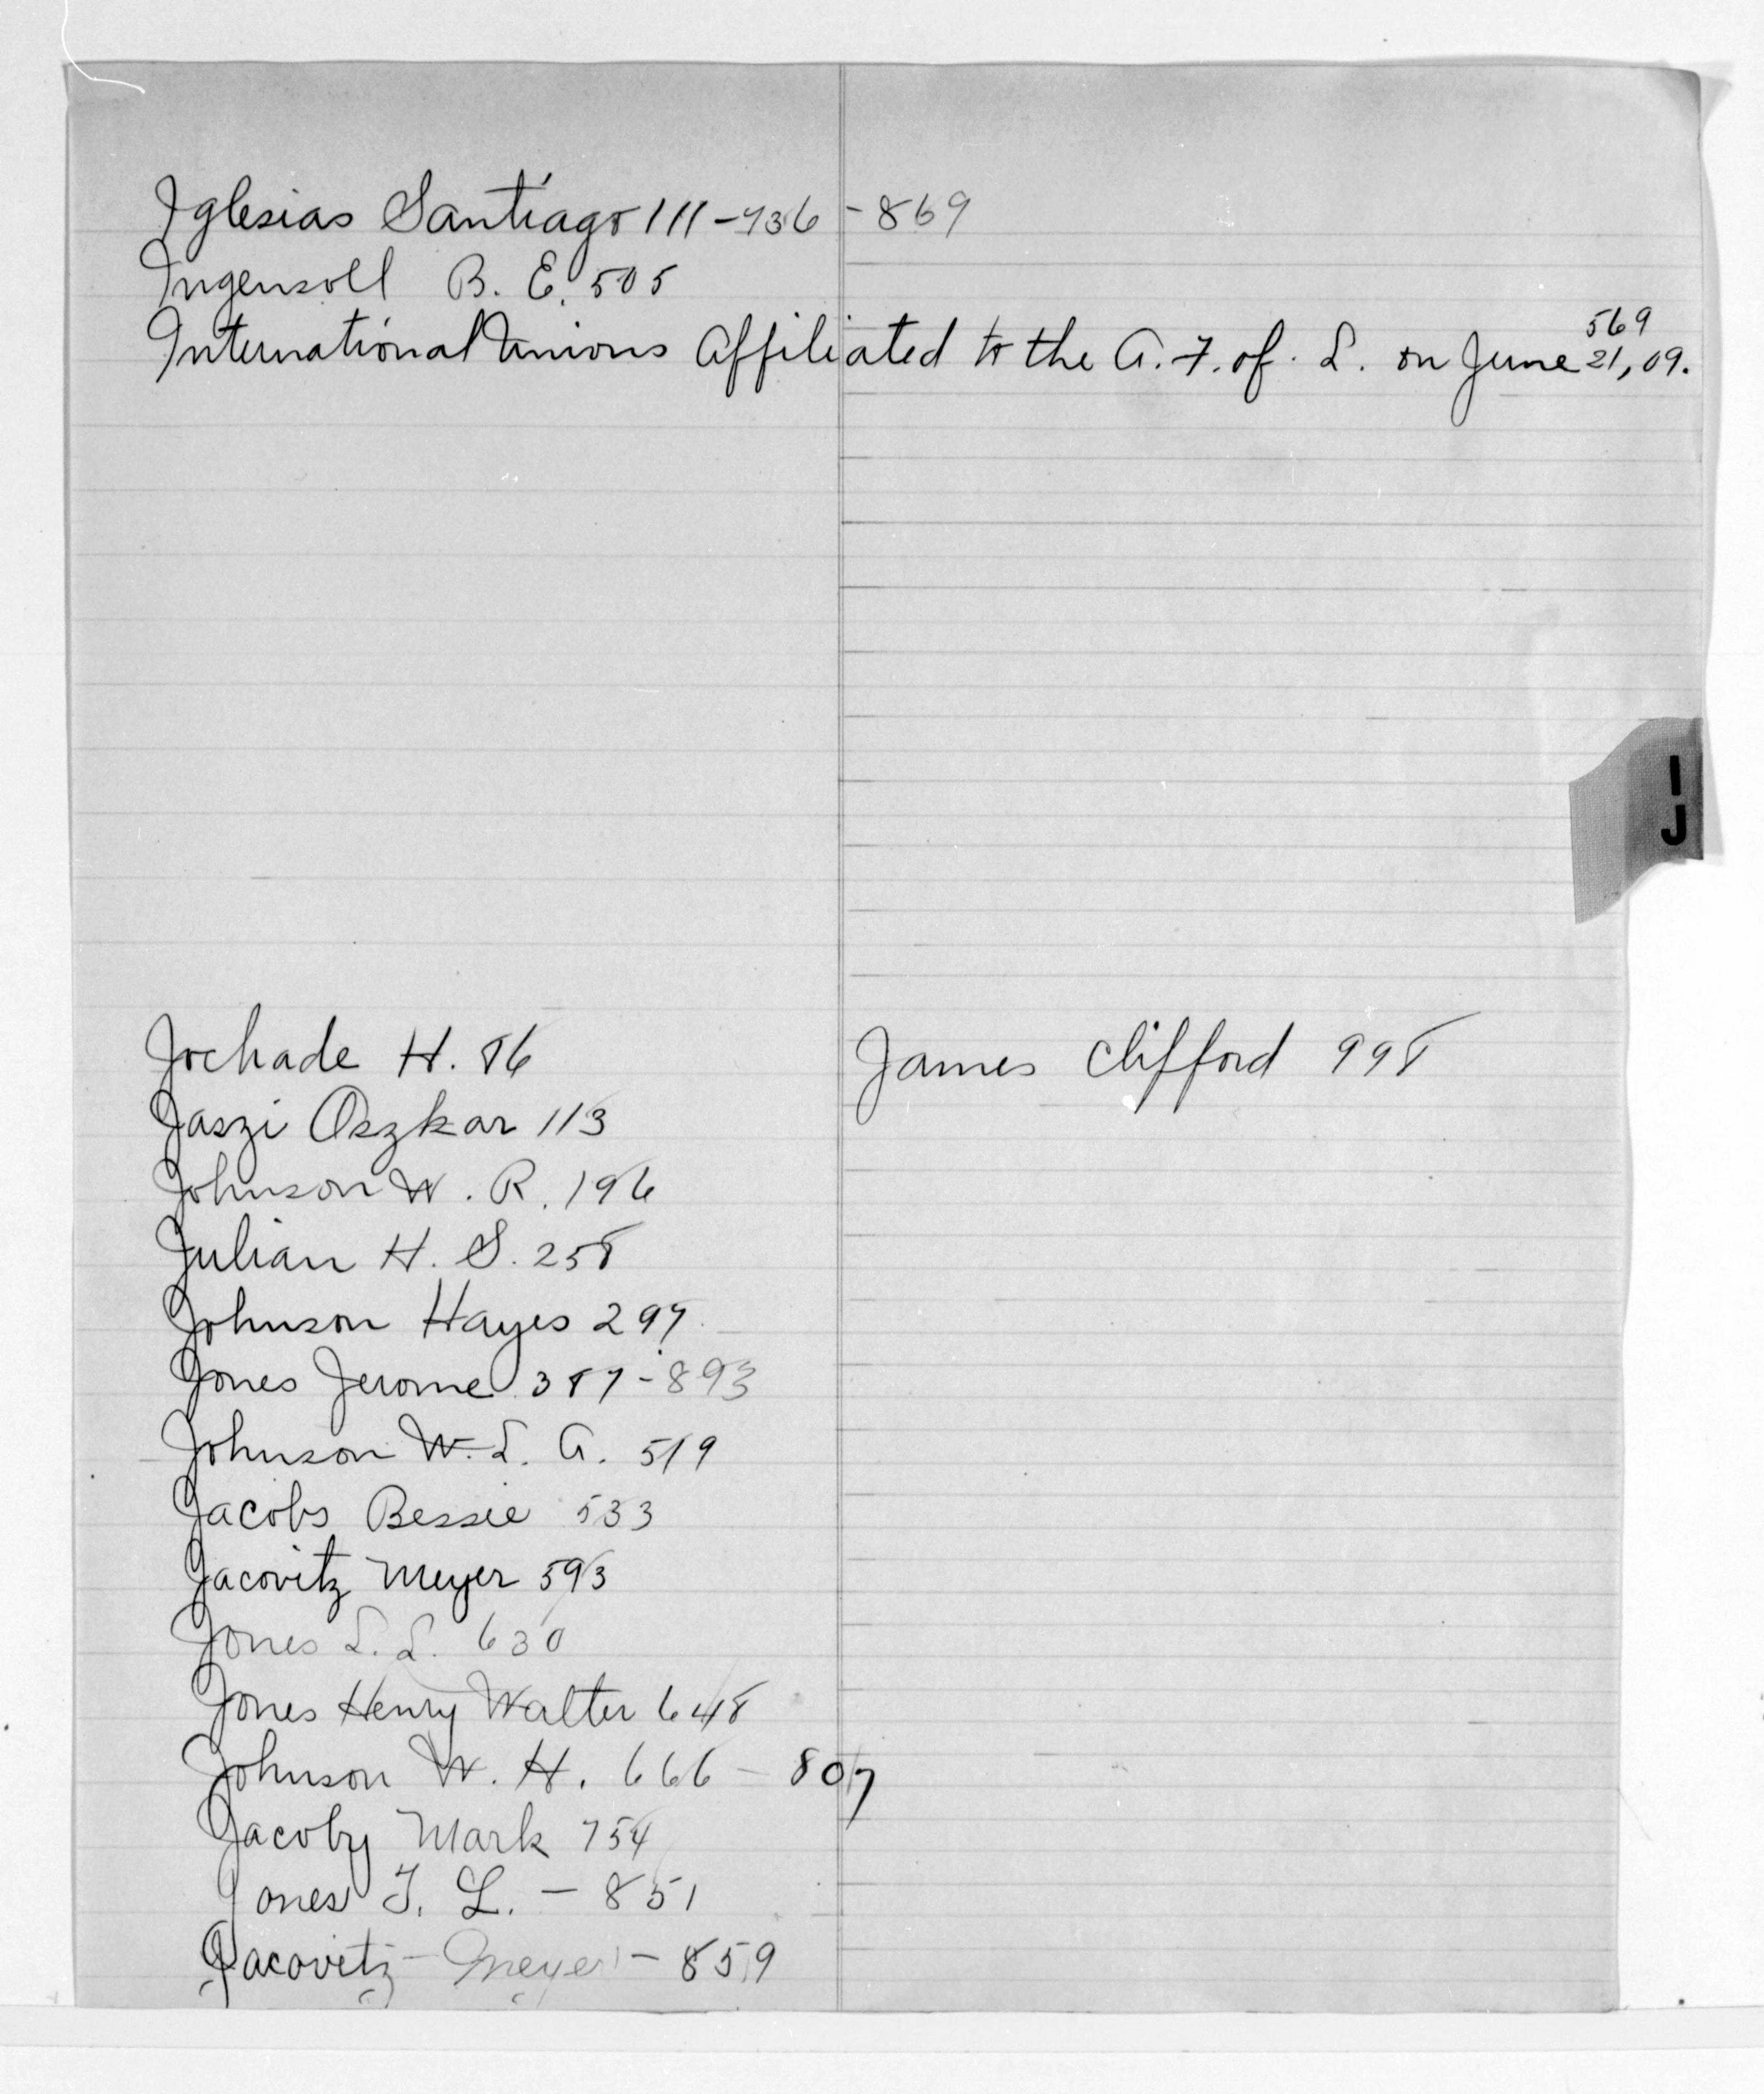 Iglesias Santiago 111-736-869
Ingersoll B. E. 505
569
International Unions Affiliated to the A. F. of L. on June 21, 09.
I
J
Jochade H. 86
James Clifford 998
Jaszi Oszkar 113
Johnson W. R. 196
Julian H. S. 258
Johnson Hayes 297
Jones Jerome 387-893
Johnson W. L. A. 519
Jacobs Bessie 533
Jacovitz Meyer 593
Jones L. L. 630
Jones Henry Walter 648
Johnson W. H. 666 - 807
Jacoby Mark 754
Jones T. L. - 851
Jacovitz - Meyer - 859